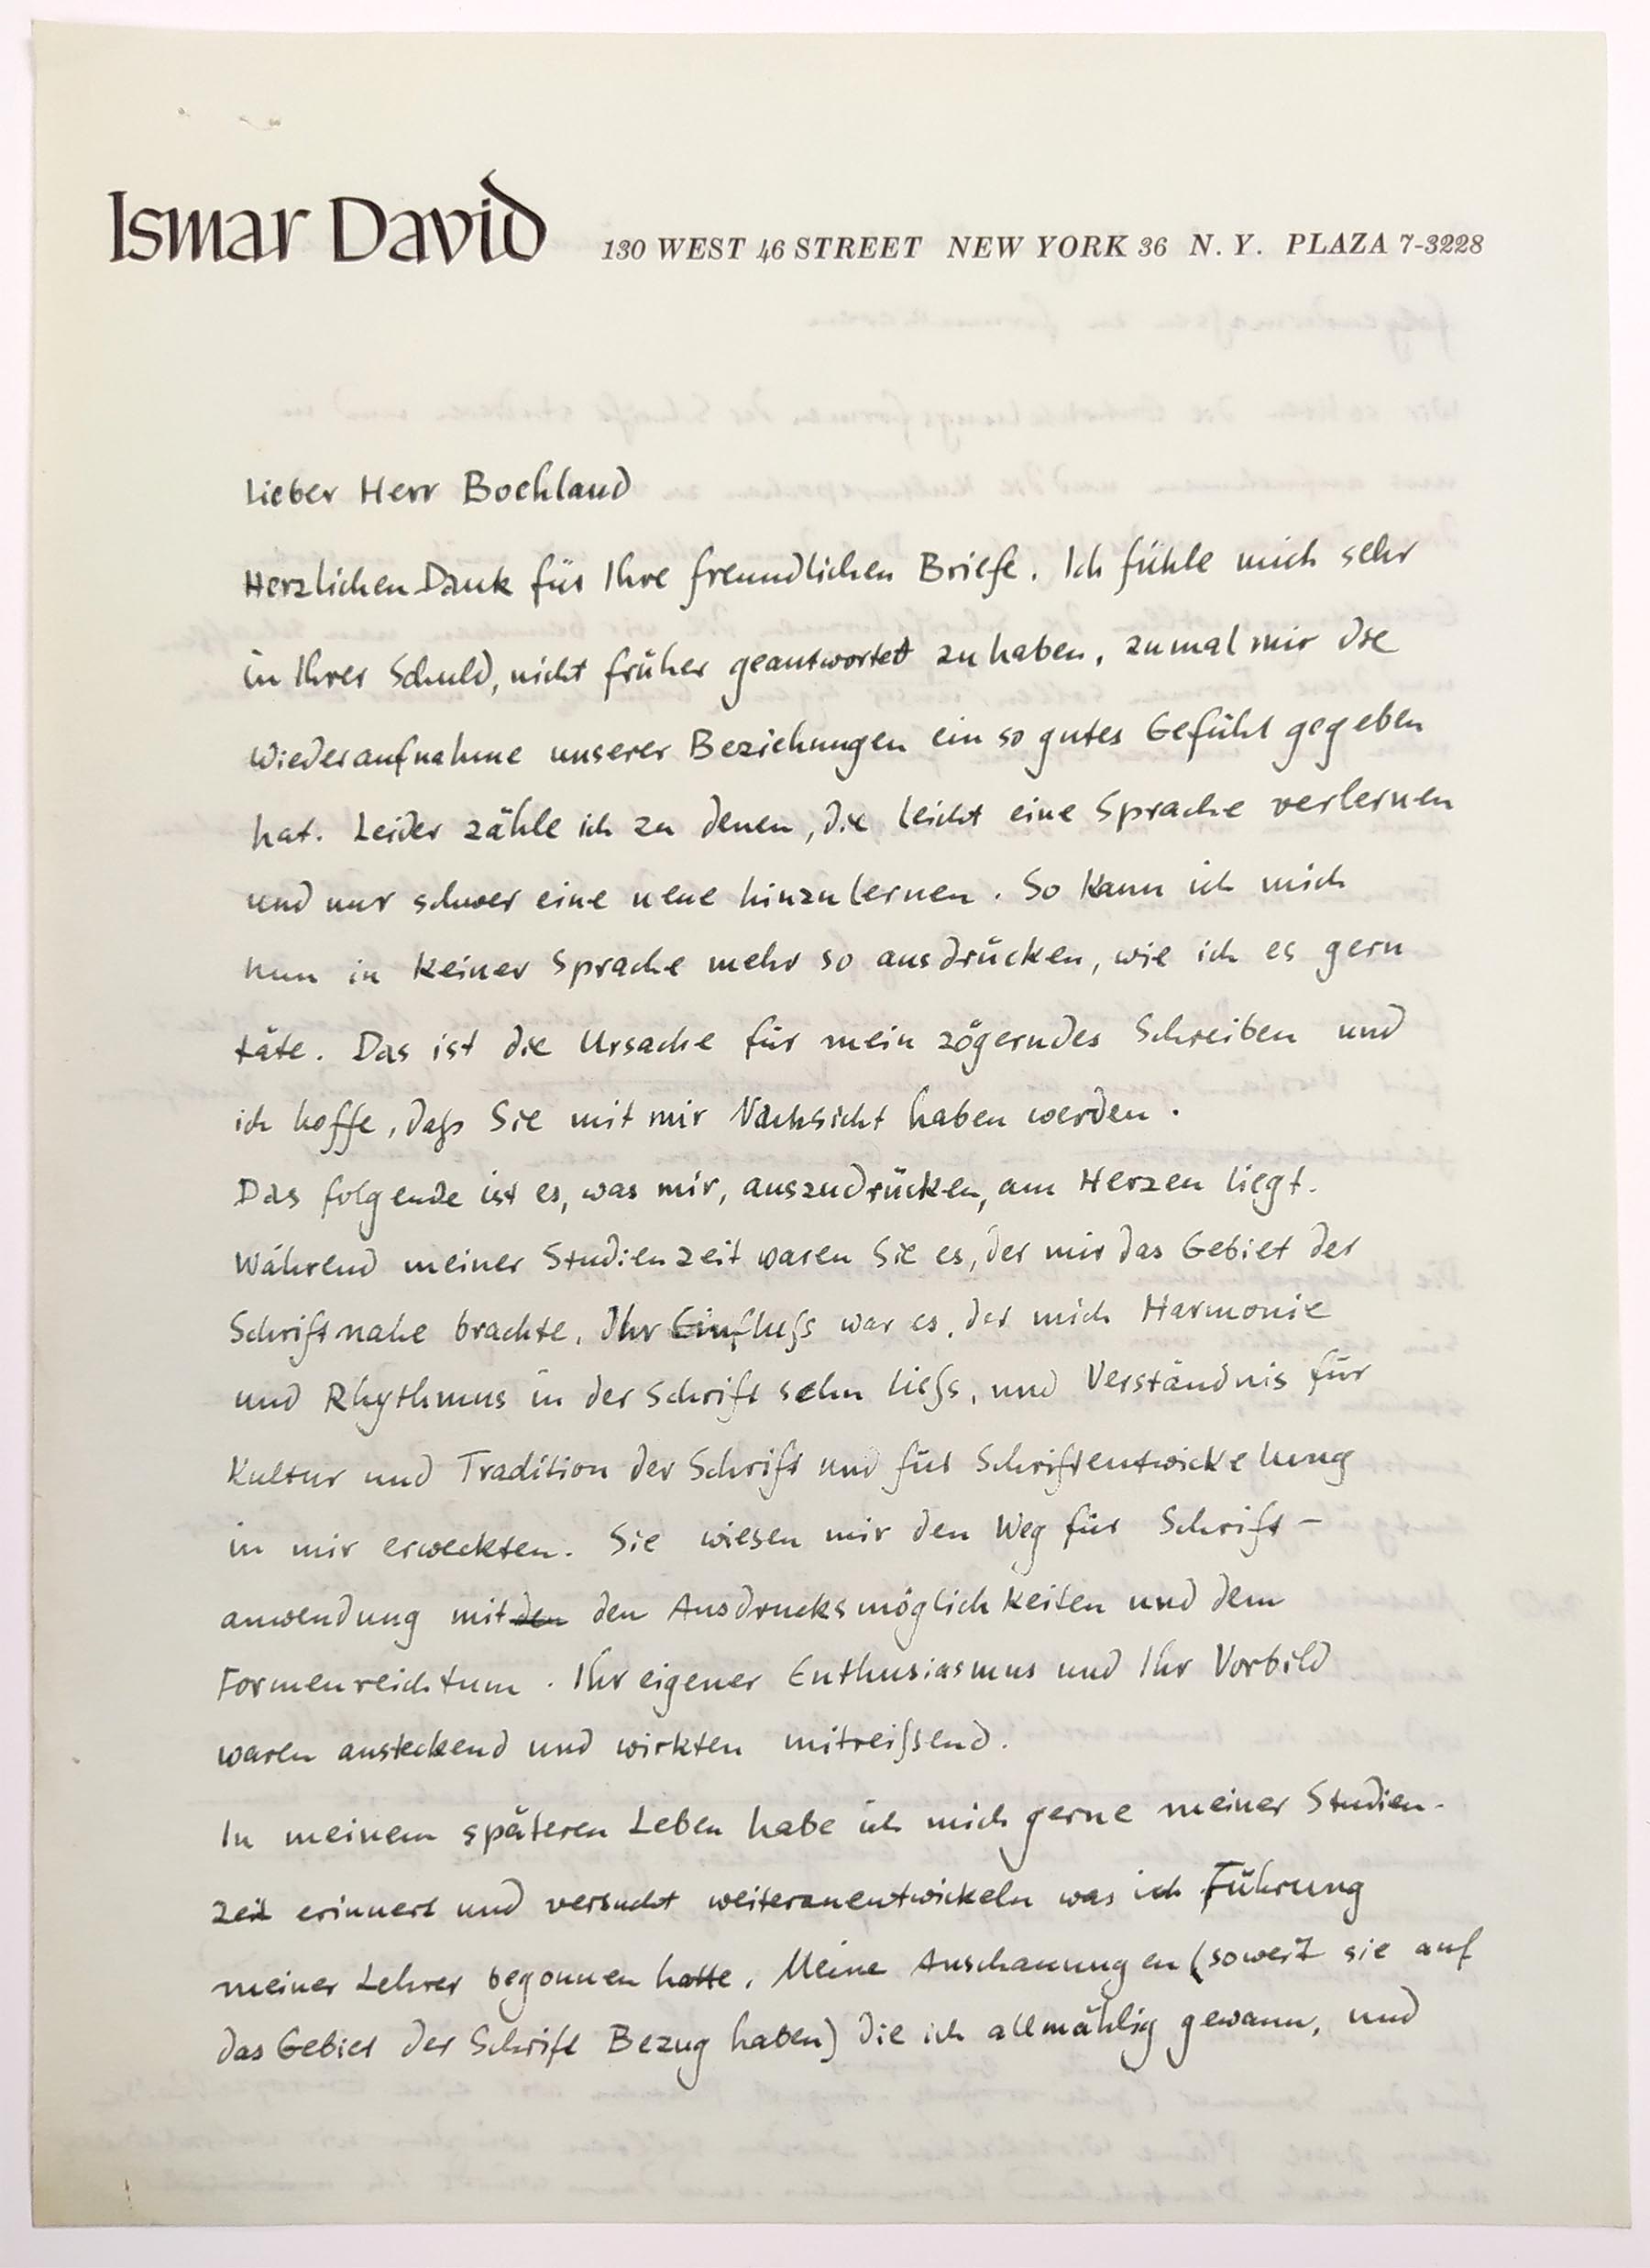 Ismar David 130 WEST 46 STREET NEW YORK 36 N. Y. PLAZA 7-3228
Lieber Herr Boehland
Herzlichen Dank für Ihre freundlichen Briefe. Ich fühle mich sehr
in Ihrer Schuld, nicht früher geantwortet zu haben, zumal mir die
Wiederaufnahme unserer Beziehungen ein so gutes Gefühl gegeben
hat. Leider zähle ich zu denen, die leicht eine Sprache verlernen
und nur schwer eine neue hinzulernen. So kann ich mich
nun in keiner Sprache mehr so ausdrücken, wie ich es gern
täte. Das ist die Ursache für mein zögerndes Schreiben und
ich hoffe, daß Sie mit mir Nachsicht haben werden.
Das folgende ist es, was mir, auszudrücken, am Herzen liegt.
Während meiner Studienzeit waren Sie es, der mir das Gebiet der
Schrift nahe brachte. Ihr Einfluß war es, der mich Harmonie
und Rhythmus in der Schrift sehn ließ, und Verständnis für
Kultur und Tradition der Schrift und für Schriftentwickelung
in mir erweckten. Sie wiesen mir den Weg für Schrift-
anwendung mit den den Ausdrucksmöglichkeiten und dem
Formenreichtum. Ihr eigener Enthusiasmus und Ihr Vorbild
waren ansteckend und wirkten mitreißend.
In meinem späteren Leben habe ich mich gerne meiner Studien-
zeit erinnert und versucht weiterzuentwickeln was ich Führung
meiner Lehrer begonnen hatte. Meine Anschauungen (soweit sie auf
das Gebiet der Schrift Bezug haben) die ich allmählig gewann, und